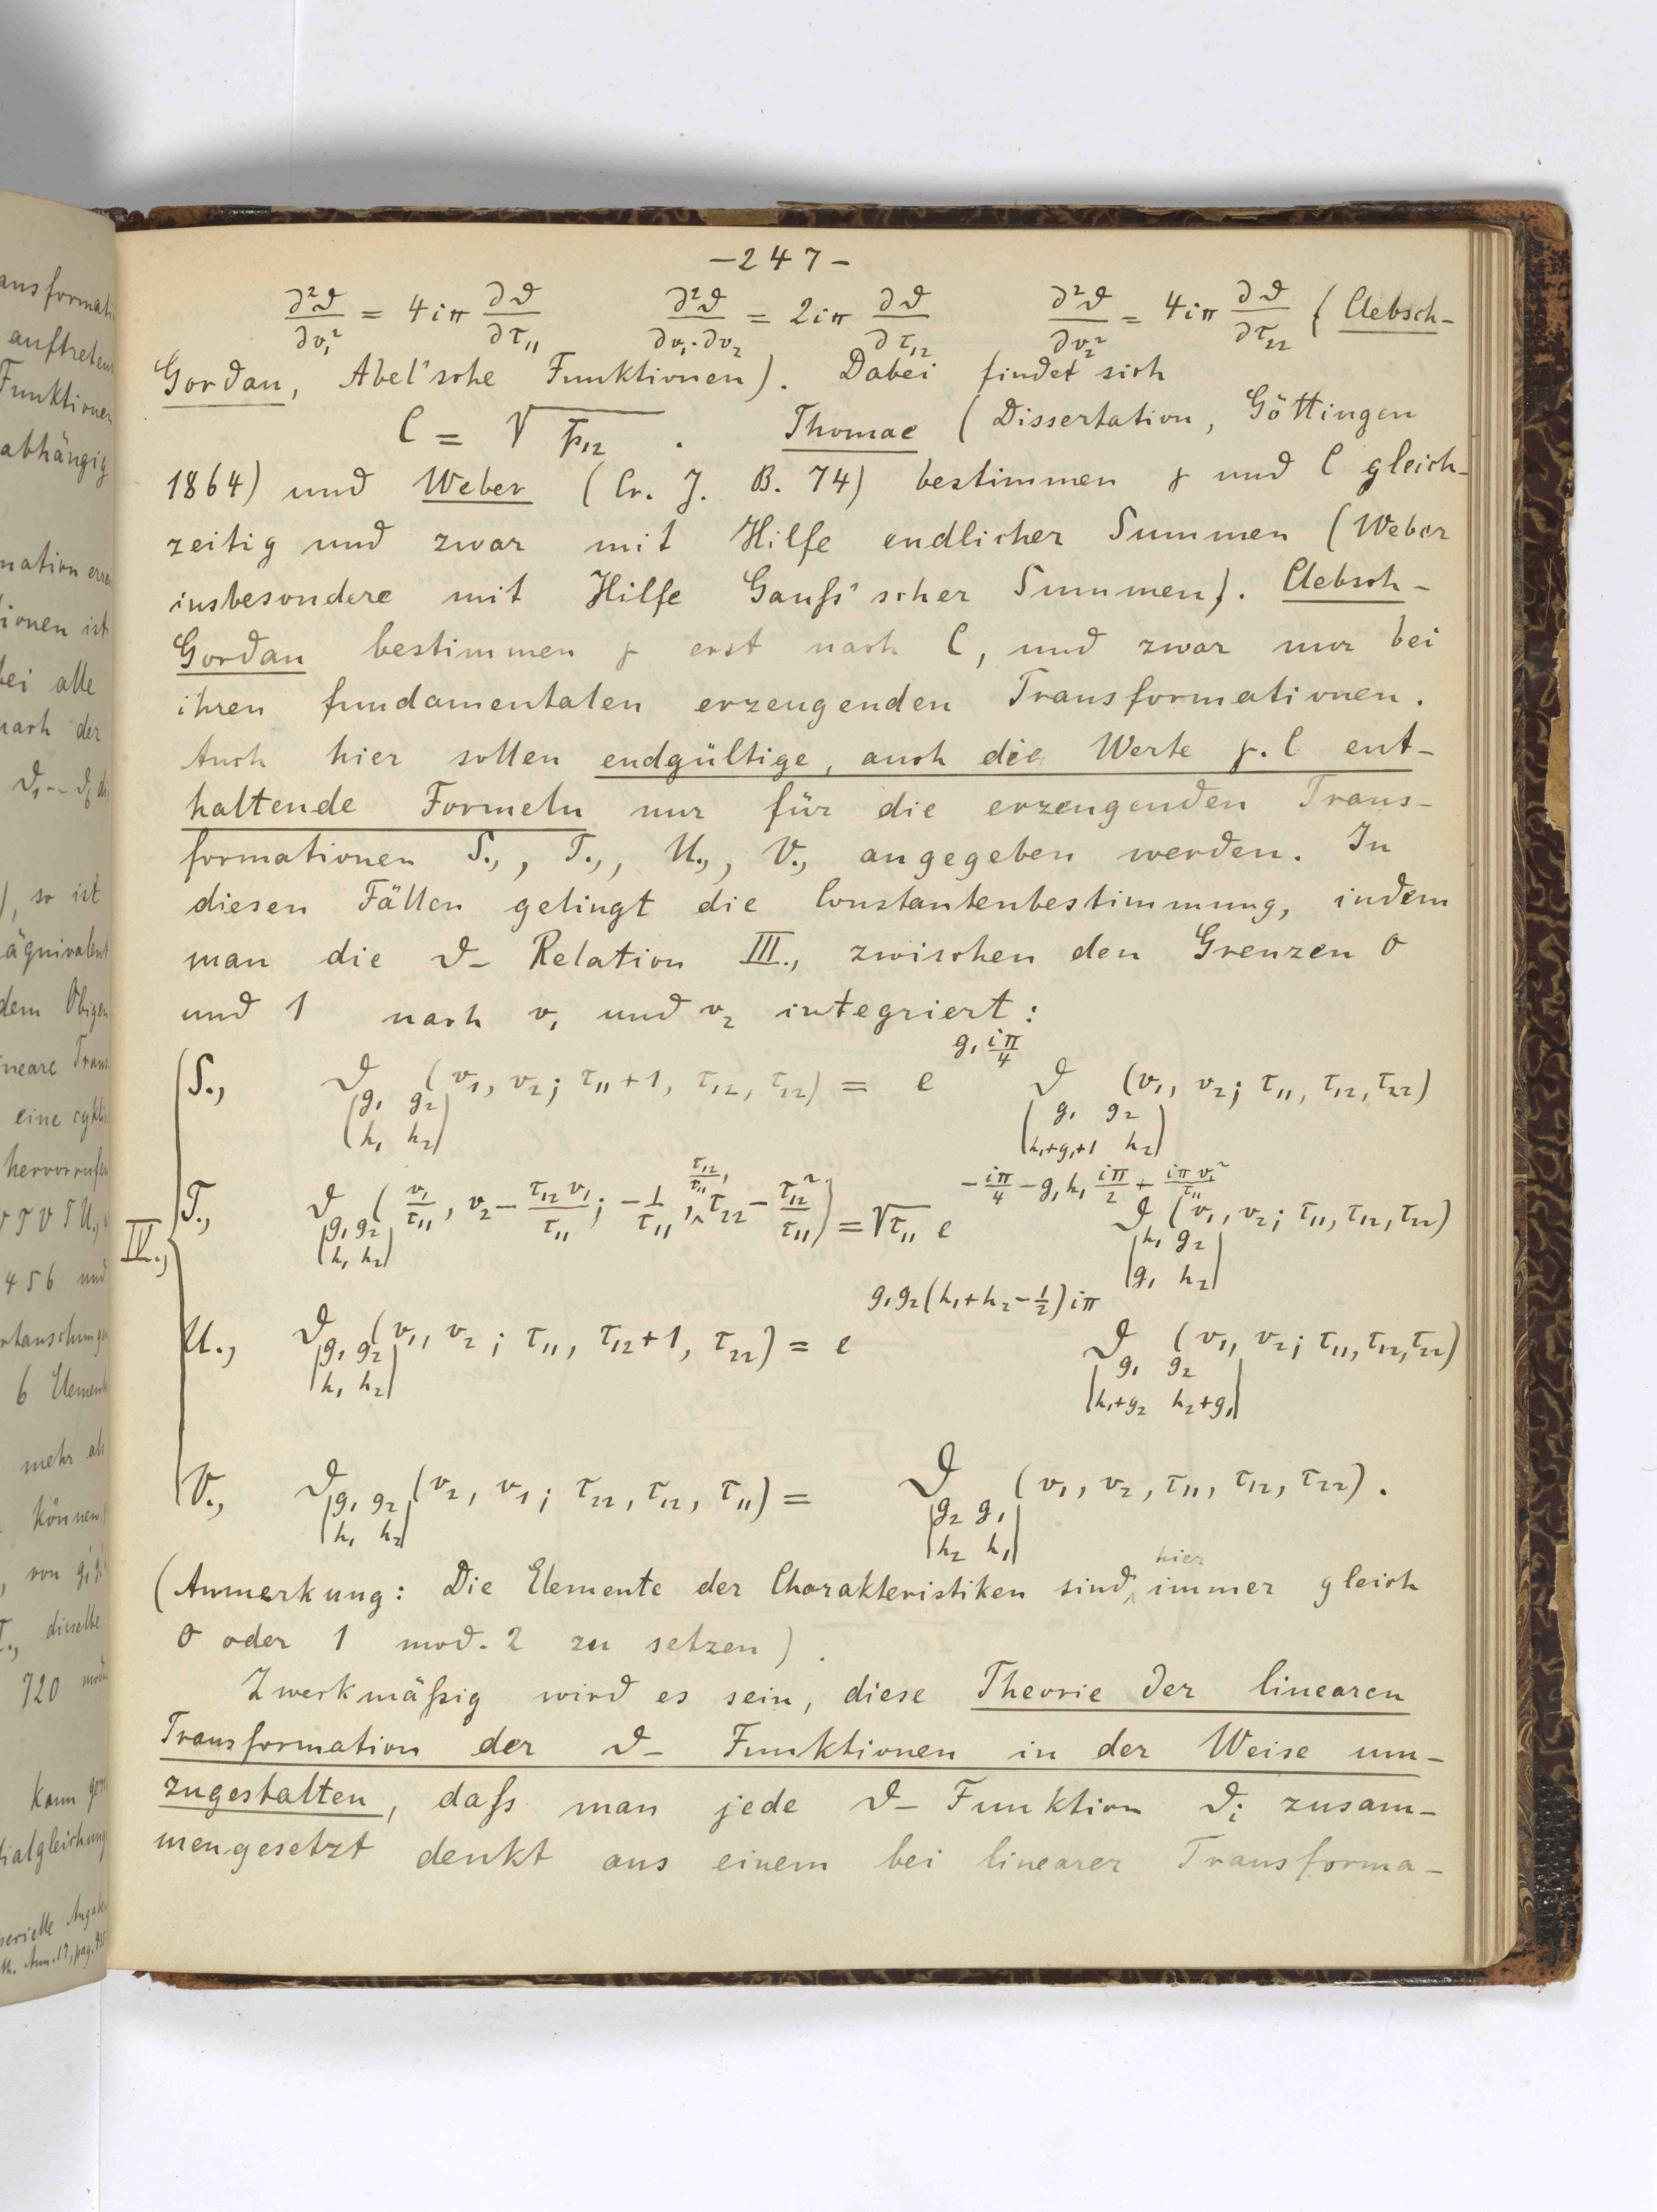 ansformati
auftreten
Funktionen
abhängig
mation
ionen ist
bei alle
nach der
), so ist
äquivalent
dem Obigen
neare Tran
eine cykli
hervorrufen
456 und
rtauschung
6 Element
mehr als
können
von
dieselbe
720
kann
tialgleichung
Angabe
Ann. 17, pag.
—247—
∂²ϑ/∂v₁² = 4iπ ∂ϑ/∂τ₁₁   ∂²ϑ/∂v₁·∂v₂ = 2iπ ∂ϑ/∂τ₁₂   ∂²ϑ/∂v₂² = 4iπ ∂ϑ/∂τ₂₂ (Clebsch-
Gordan, Abel'sche Funktionen). Dabei findet sich
C = √p₁₂ . Thomae (Dissertation, Göttingen
1864) und Weber (Cr. J. B. 74) bestimmen γ und C gleich-
zeitig und zwar mit Hilfe endlicher Summen (Weber
insbesondere mit Hilfe Gauß'scher Summen). Clebsch-
Gordan bestimmen γ erst nach C, und zwar nur bei
ihren fundamentalen erzeugenden Transformationen.
Auch hier sollen endgültige, auch die Werte γ. C ent-
haltende Formeln nur für die erzeugenden Trans-
formationen S., T., U., V., angegeben werden. In
diesen Fällen gelingt die Constantenbestimmung, indem
man die ϑ- Relation III., zwischen den Grenzen 0
und 1 nach v₁ und v₂ integriert:
S., ϑ|g₁ g₂ / h₁ h₂| (v₁, v₂; τ₁₁+1, τ₁₂, τ₂₂) = e^{g₁ iπ/4} ϑ|g₁ g₂ / h₁+g₁+1 h₂| (v₁, v₂; τ₁₁, τ₁₂, τ₂₂)
T., ϑ|g₁ g₂ / h₁ h₂| (v₁/τ₁₁, v₂ - τ₁₂v₁/τ₁₁; -1/τ₁₁, τ₁₂/τ₁₁, τ₂₂ - τ₁₂²/τ₁₁) = √τ₁₁ e^{-iπ/4 - g₁h₁ iπ/2 + iπv₁²/τ₁₁} ϑ|h₁ g₂ / g₁ h₂| (v₁, v₂; τ₁₁, τ₁₂, τ₂₂)
IV.,
U., ϑ|g₁ g₂ / h₁ h₂| (v₁, v₂; τ₁₁, τ₁₂+1, τ₂₂) = e^{g₁g₂(h₁+h₂-1/2)iπ} ϑ|g₁ g₂ / h₁+g₂ h₂+g₁| (v₁, v₂; τ₁₁, τ₁₂, τ₂₂)
V., ϑ|g₁ g₂ / h₁ h₂| (v₂, v₁; τ₂₂, τ₁₂, τ₁₁) = ϑ|g₂ g₁ / h₂ h₁| (v₁, v₂, τ₁₁, τ₁₂, τ₂₂).
(Anmerkung: Die Elemente der Charakteristiken sind hier immer gleich
0 oder 1 mod. 2 zu setzen).
Zweckmäßig wird es sein, diese Theorie der linearen
Transformation der ϑ- Funktionen in der Weise um-
zugestalten, daß man jede ϑ- Funktion ϑᵢ zusam-
mengesetzt denkt aus einem bei linearer Transforma-